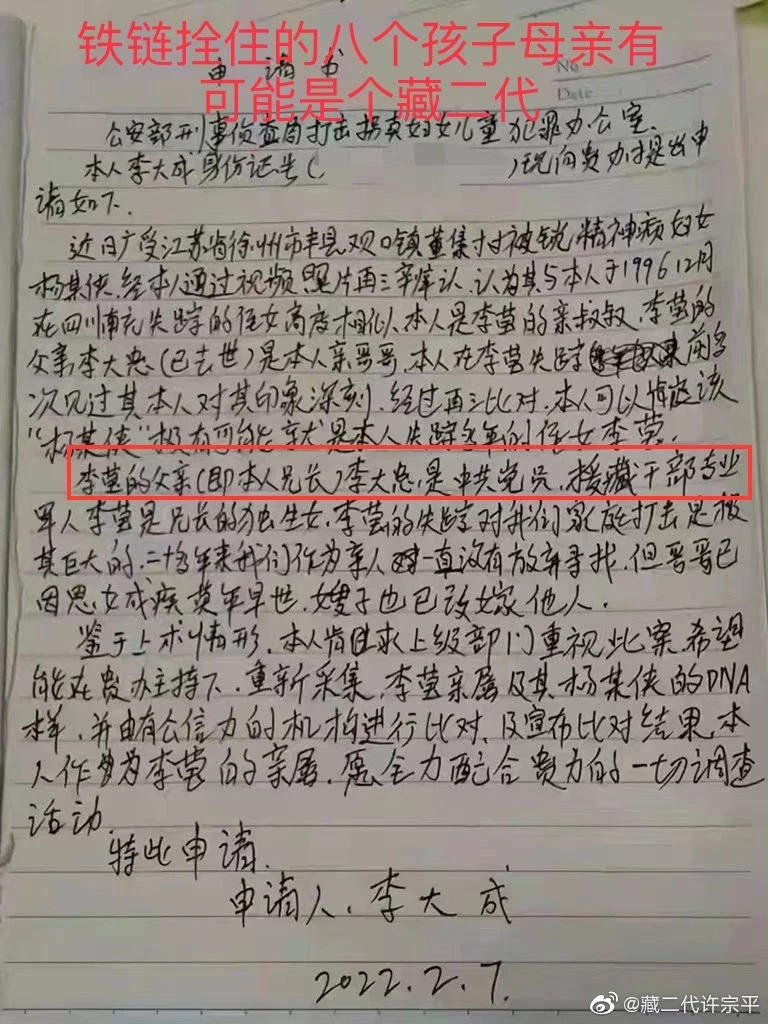 铁链拴住的八个孩子母亲有
可能是个藏二代
申请书
No
Date
公安部刑事侦查局打击拐卖妇女儿童犯罪办公室、
本人李大成身份证号( )现向贵办提出申
请如下、
近日广受江苏省徐州市丰县观口镇董集村被锁精神病妇女
杨某侠、经本人通过视频照片再三辨认、认为其与本人于1996 12月
在四川南充失踪的侄女高度相似、本人是李莹的亲叔叔、李莹的
父亲李大忠(已去世)是本人亲哥哥、本人在李莹失踪前多
次见过其本人对其印象深刻、经过再三比对、本人可以肯定该
“杨某侠”极有可能就是本人失踪多年的侄女李莹、
李莹的父亲(即本人兄长)李大忠、是中共党员、援藏干部专业
军人李莹是兄长的独生女、李莹的失踪对我们家庭打击是极
其巨大的、二十多年来我们作为亲人对一直没有放弃寻找、但哥哥已
因思女成疾英年早世、嫂子也已改嫁他人.
鉴于上术情形、本人肯求上级部门重视此案、希望
能在贵办主持下、重新采集、李莹亲属及其杨某侠的DNA
样、并由有公信力的机构进行比对、及宣布比对结果、本
人作为李莹的亲属、愿全力配合贵办的一切调查
活动、
特此申请.
申请人、李大成
2022.2.7.
@藏二代许宗平